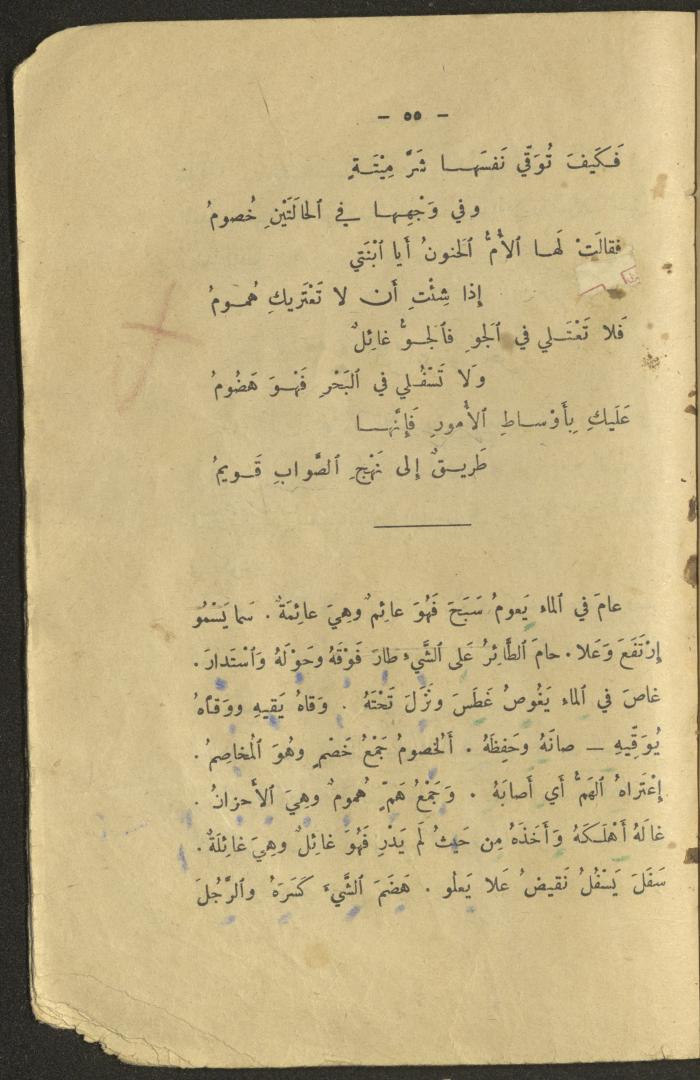 – ٥٥ –
فَكَيفَ تُوَقّي نَفسَهــا شَرَّ مِيْتَــةٍ
وفي وَجْهِهــا في ٱلحَالَتَيْنِ خُصومُ
فقالَتْ لَهـا ٱلأُمُّ ٱلحَنونُ أَيا ٱبْنَتي
إِذا شِئْتِ أَن لا تَعْتَريكِ هُمـومُ
فَلا تَعْتَـلي في ٱلجَوِ فٱلجـوُّ غائِلٌ
وَلا تَسْفُلي في ٱلبَحْرِ فَهْـوَ هَضُومُ
عَلَيكِ بِأَوْساطِ ٱلأُمورِ فَإِنَّهــا
طَريـقٌ إِلى نَهْجِ ٱلصَّوابِ قَـويمُ
عامَ في ٱلماء يَعومُ سَبَحَ فَهُوَ عائِمٌ وهِيَ عائِمَةٌ . سَما يَسْمُو
إِرْتَفَعَ وَعَلا . حامَ ٱلطَّائِرُ عَلى ٱلشَّيءِ طارَ فَوْقَهُ وحَوْلَهُ وٱسْتَدارَ .
غاصَ في ٱلماء يَغُوصُ غَطَسَ ونَزَلَ تَحْتَهُ . وَقاهُ يَقيهِ ووَقّاهُ
يُوَقِّيهِ – صانَهُ وحَفِظَهُ . أَلخصومُ جَمْعُ خَصْمٍ وهُوَ ٱلْمُخاصِمُ .
إِعْتَراهُ ٱلهَمُّ أَي أَصابَهُ . وَجَمْعُ هَمٍّ هُمومٌ وهِيَ ٱلأَحزانُ .
غالَهُ أَهْلَـكَهُ وَأَخَذَهُ مِن حَيثُ لَم يَدْرِ فَهُوَ غائِلٌ وهِيَ غائِلَةٌ .
سَفَلَ يَسْفُلُ نَقيضُ عَلا يَعلُو . هَضَمَ ٱلشَّيءَ كَسَرَهُ وٱلرَّجُلَ